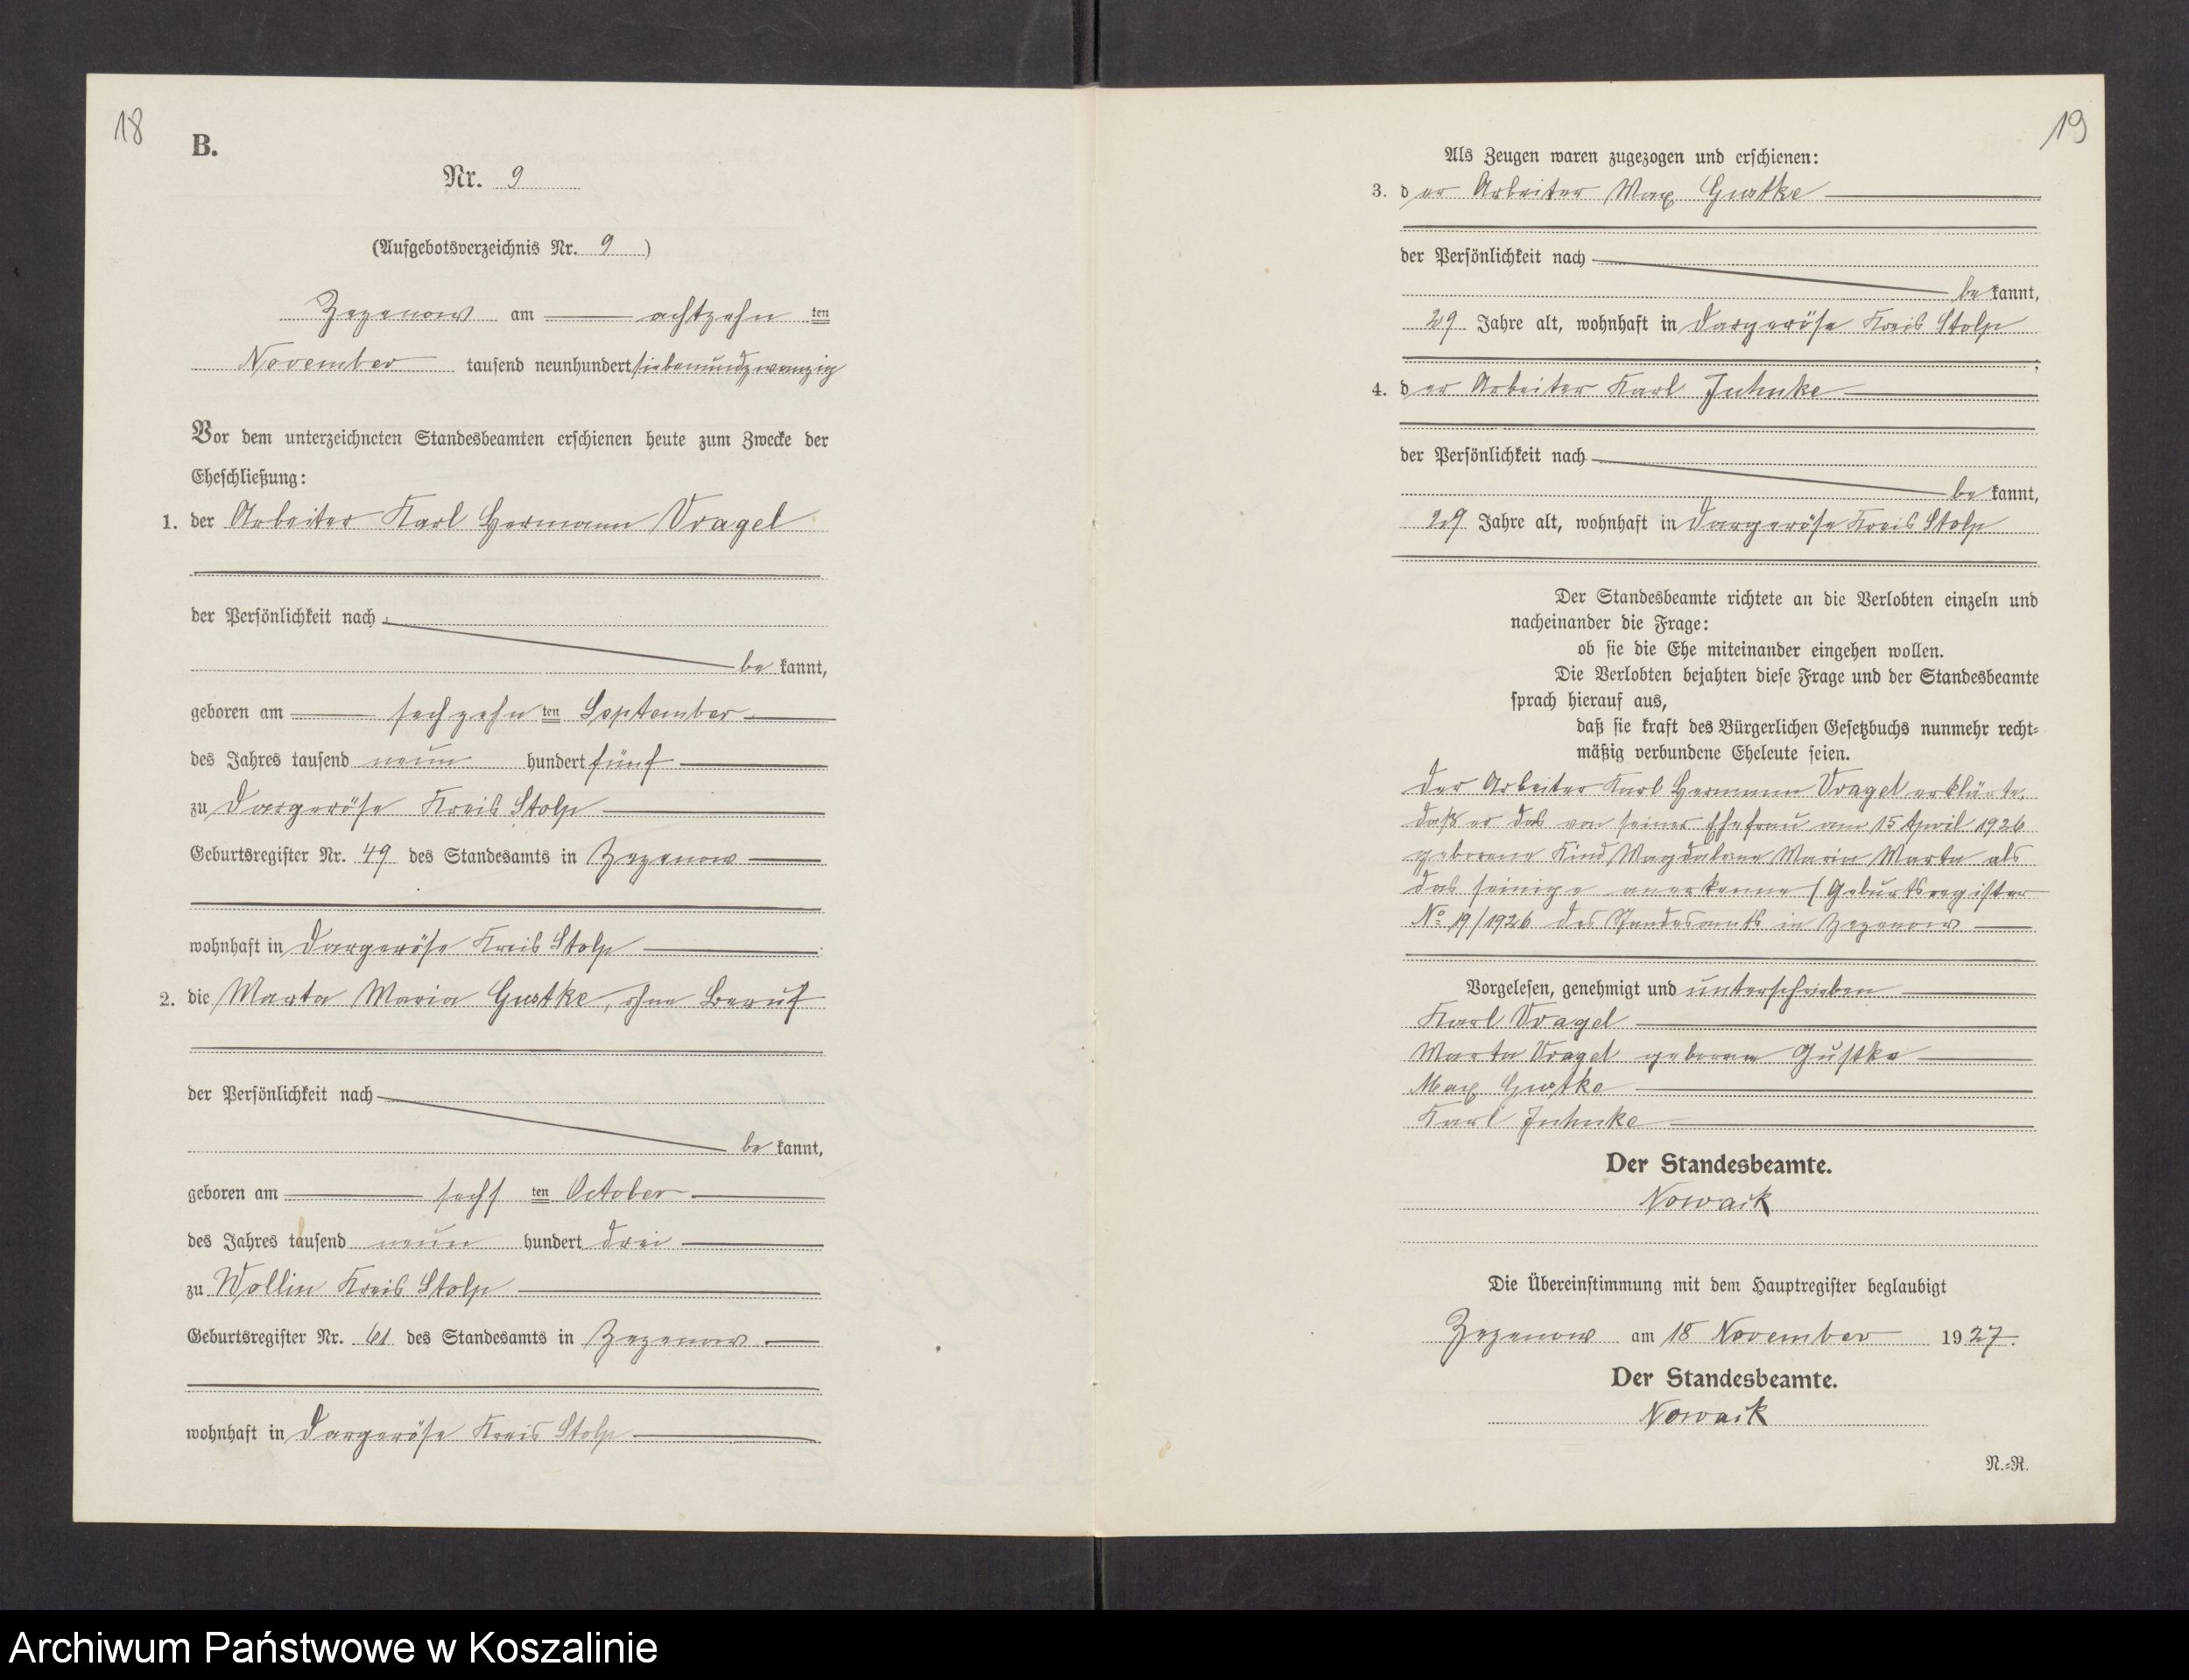 18
B.
Nr. 9
(Aufgebotsverzeichnis Nr. 9)
Zezenow am achtzehn ten
November tausend neunhundert siebenundzwanzig
Vor dem unterzeichneten Standesbeamten erschienen heute zum Zwecke der
Eheschließung:
1. der Arbeiter Karl Hermann Vragel
der Persönlichkeit nach
be kannt,
geboren am sechzehn ten September
des Jahres tausend neun hundert fünf
zu Dargeröse Kreis Stolp
Geburtsregister Nr. 49 des Standesamts in Zezenow
wohnhaft in Dargeröse Kreis Stolp
2. die Marta Maria Gustke, ohne Beruf
der Persönlichkeit nach
be kannt,
geboren am sechs ten October
des Jahres tausend neun hundert drei
zu Wollin Kreis Stolp
Geburtsregister Nr. 61 des Standesamts in Zezenow
wohnhaft in Dargeröse Kreis Stolp
19
Als Zeugen waren zugezogen und erschienen:
3. der Arbeiter Max Gustke
der Persönlichkeit nach
be kannt,
29 Jahre alt, wohnhaft in Dargeröse Kreis Stolp
;
4. der Arbeiter Karl Juhnke
der Persönlichkeit nach
be kannt,
29 Jahre alt, wohnhaft in Dargeröse Kreis Stolp
Der Standesbeamte richtete an die Verlobten einzeln und
nacheinander die Frage:
ob sie die Ehe miteinander eingehen wollen.
Die Verlobten bejahten diese Frage und der Standesbeamte
sprach hierauf aus,
daß sie kraft des Bürgerlichen Gesetzbuchs nunmehr recht-
mäßig verbundene Eheleute seien.
Der Arbeiter Karl Hermann Vragel erklärte,
daß er das von seiner Ehefrau am 15 April 1926
geborene Kind Magdalena Maria Marta als
das seinige anerkenne (Geburtsregister
No 19/1926 des Standesamts in Zezenow
Vorgelesen, genehmigt und unterschrieben
Karl Vragel
Marta Vragel geborene Gustke
Max Gustke
Karl Juhnke
Der Standesbeamte.
Nowack
Die Übereinstimmung mit dem Hauptregister beglaubigt
Zezenow am 18 November 1927.
Der Standesbeamte.
Nowack
N.-R.
Archiwum Państwowe w Koszalinie